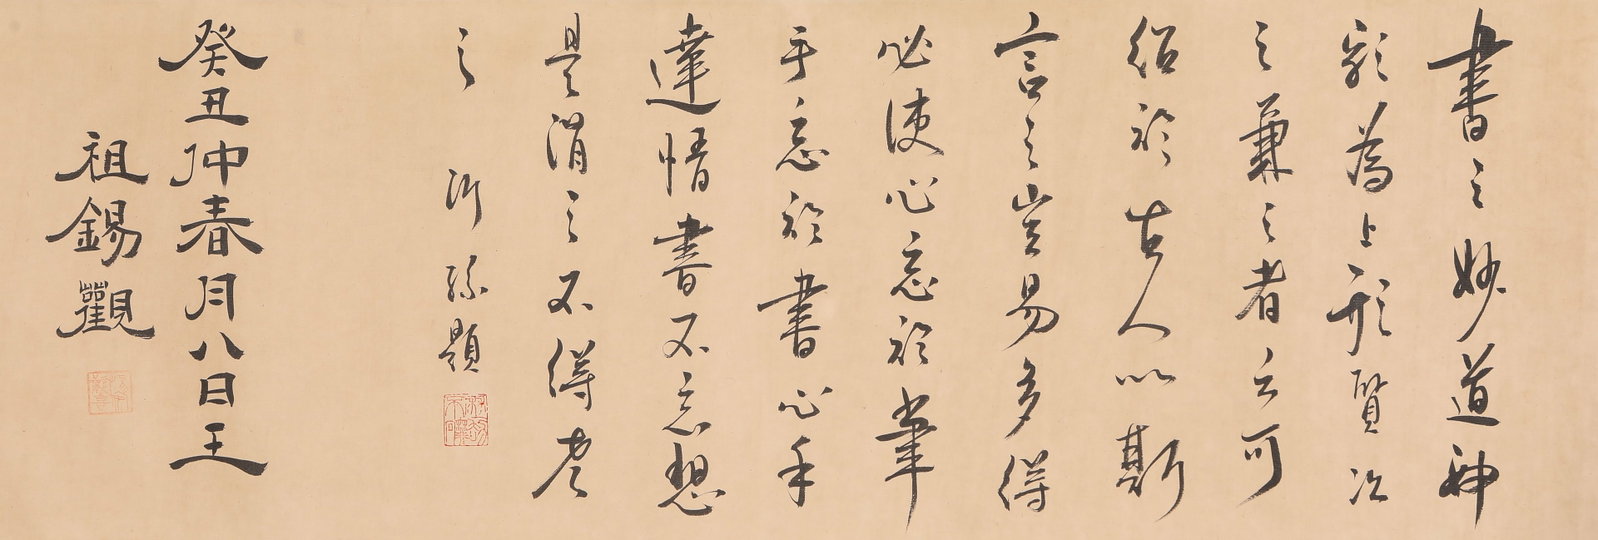 書之妙道神
彩為上形質次
之兼之者方可
紹於古人以斯
言之豈易多得
必使心忘於筆
手忘於書心手
達情書不忘想
是謂之不得考
之 沂孫題
癸丑仲春月八日王
祖錫觀